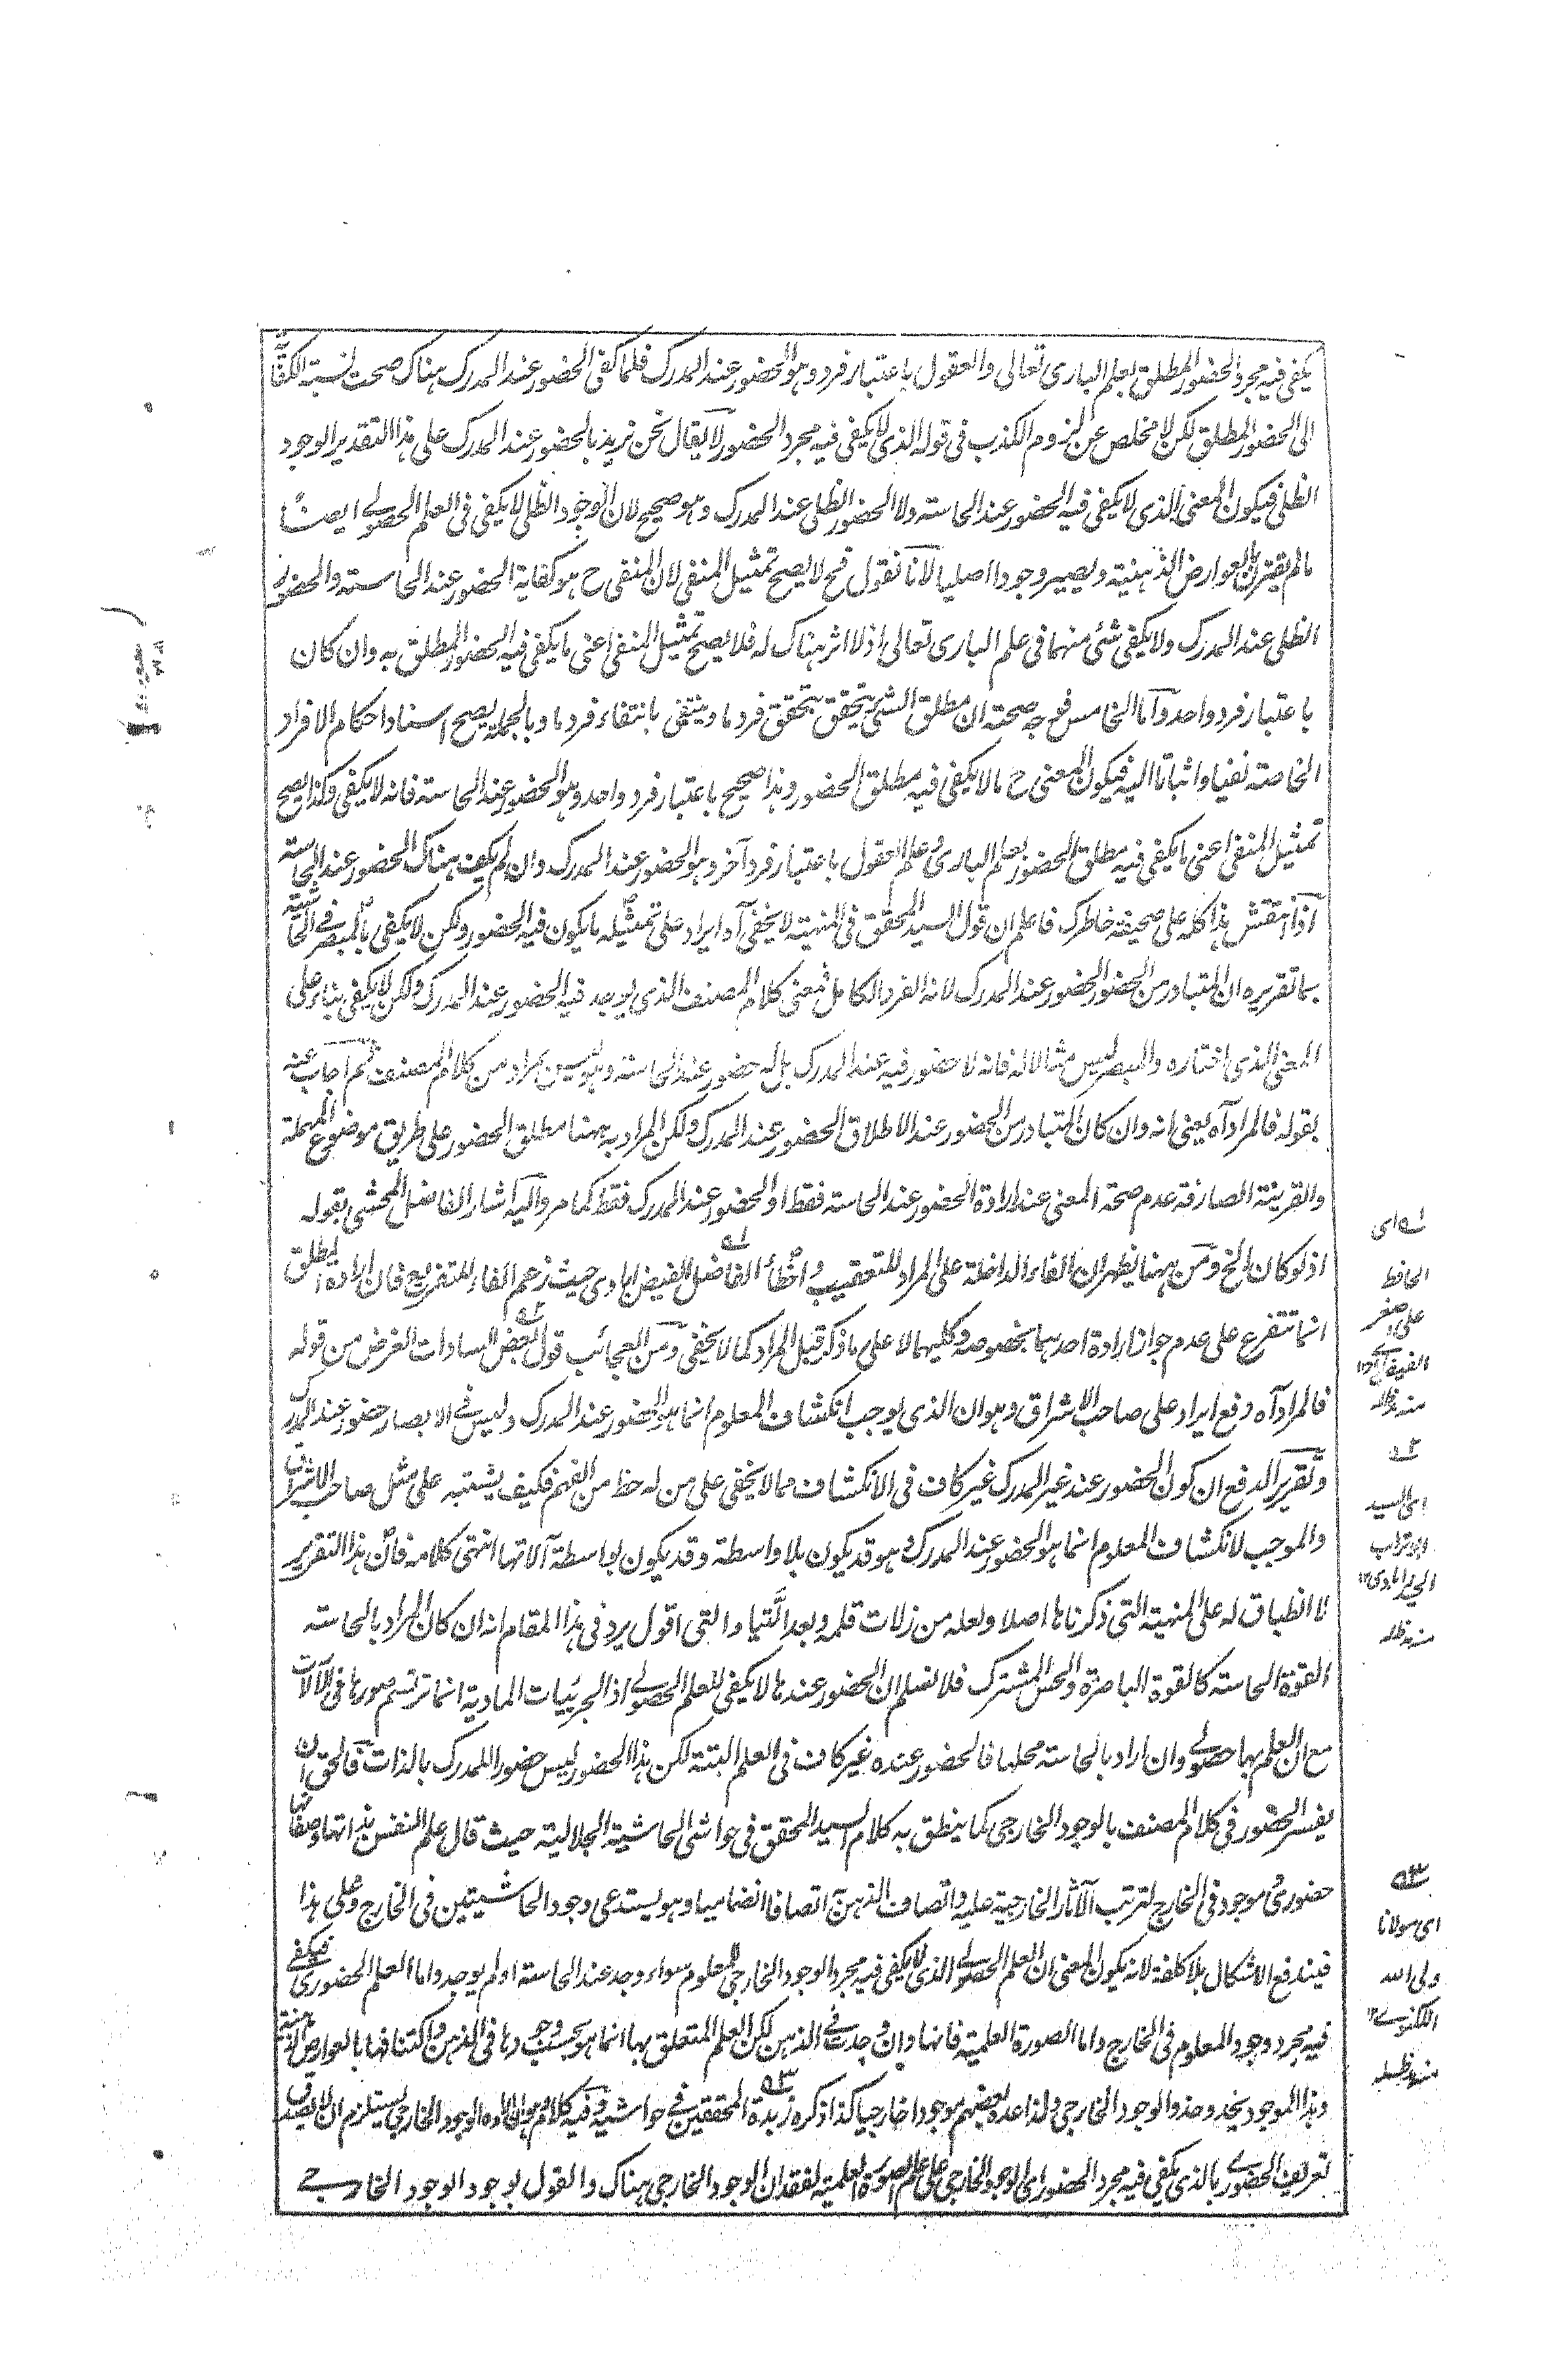 يكفى فيه مجرد الحضور المطلق بعلم البارى تعالى والعقول باعتبار فرد وهو الحضور عند المدرك فلما كفى الحضور عند المدرك هناك صحت نسبة الكفاية
الى الحضور المطلق لكن لا مخلص عن لزوم الكذب فى قوله الذى لا يكفى فيه مجرد الحضور لا يقال نحن نريد بالحضور عند المدرك على هذا التقدير الوجود
الظلى فيكون المعنى الذى لا يكفى فيه الحضور عند الحاسة ولا الحضور الظلى عند المدرك وهو صحيح لان الوجود الظلى لا يكفى فى العلم الحصولى ايضًا
مالم يقترن بالعوارض الذهنية ويصير وجودا اصليا لانا نقول فح لا يصح تمثيل المنفى لان المنفى ح هو كفاية الحضور عند الحاسة والحضور
الظلى عند المدرك ولا يكفى شئ منهما فى علم البارى تعالى اذ لا اثر هناك له فلا يصح تمثيل المنفى اعنى ما يكفى فيه الحضور المطلق به وان كان
باعتبار فرد واحد وآما الخامس فوجه صحته ان مطلق الشئ يتحقق بتحقق فرد ما وينتفى بانتفاء فرد ما وبالجملة يصح اسناد احكام الافراد
الخاصة نفيا واثباتا اليه فيكون المعنى ح مالا يكفى فيه مطلق الحضور وهذا صحيح باعتبار فرد واحد وهو الحضور عند الحاسة فانه لا يكفى وكذا يصح
تمثيل المنفى اعنى ما يكفى فيه مطلق الحضور بعلم البارى وعلم العقول باعتبار فرد آخر وهو الحضور عند المدرك وان لم يكف هناك الحضور عند الحاسة
اذا انتقش هذا كله على صحيفة خاطرك فاعلم ان قول السيد المحقق فى المنهية لا يخفى آه ايراد على تمثيله ما يكون فيه الحضور ولكن لا يكفى بالمبصر فى الحاشية
بما تقريره ان المتبادر من الحضور الحضور عند المدرك لانه الفرد الكامل فمعنى كلام المصنف الذى يوجد فيه الحضور عند المدرك ولكن لا يكفى بناء على
المعنى الذى اختاره والمبصر ليس مثالا له فانه لا حضور فيه عند المدرك بل له حضور عند الحاسة وهو ليس بمراد من كلام المصنف ثم اجاب عنه
بقوله فالمراد آه يعنى انه وان كان المتبادر من الحضور عند الاطلاق الحضور عند المدرك ولكن المراد به ههنا مطلق الحضور على طريق موضوع المهملة
والقرينة الصارفة عدم صحة المعنى عند ارادة الحضور عند الحاسة فقط او الحضور عند المدرك فقط كما مر واليه اشار الفاضل المحشى بقوله
اذ لو كان الخ ومن ههنا يظهر ان الفاء الداخلة على المراد للتعقيب واخطأ الفاضل الفيض ابادى حيث زعم الفاء للتفريع فان ارادة المطلق
انما تتفرع على عدم جواز ارادة احدهما بخصوصه وكليهما لا على ما ذكر قبل المراد كما لا يخفى ومن العجائب قول بعض السادات الغرض من قوله
فالمراد آه دفع ايراد على صاحب الاشراق وهو ان الذى يوجب انكشاف المعلوم انما هو الحضور عند المدرك وليس فى الابصار حضور عند المدرك
وتقرير الدفع ان كون الحضور عند غير المدرك غير كاف فى الانكشاف مما لا يخفى على من له حظ من الفهم فكيف يشتبه على مثل صاحب الاشراق
والموجب لانكشاف المعلوم انما هو الحضور عند المدرك وهو قد يكون بلا واسطة وقد يكون بواسطة آلاتها انتهى كلامه فان هذا التقرير
لا انطباق له على المنهية التى ذكرناها اصلا ولعله من زلات قلمه وبعد اللتيا والتى اقول يرد فى هذا المقام انه ان كان المراد بالحاسة
القوة الحاسة كالقوة الباصرة والحس المشترك فلا نسلم ان الحضور عندها لا يكفى للعلم الحصولى اذ الجزئيات المادية انما ترتسم صورها فى الآلات
مع ان العلم بها حصولى وان اراد بالحاسة محلها فالحضور عنده غير كاف فى العلم البتة لكن هذا الحضور ليس حضورا للمدرك بالذات فالحق ان
يفسر الحضور فى كلام المصنف بالوجود الخارجى كما ينطق به كلام السيد المحقق فى حواشى الحاشية الجلالية حيث قال علم النفس بذاتها وصفاتها
حضورى موجود فى الخارج لترتب الآثار الخارجية عليه واتصاف الذهن به اتصافا انضماميا وهو يستدعى وجود الحاشيتين فى الخارج وعلى هذا
فيندفع الاشكال بلا كلفة لانه يكون المعنى ان العلم الحصولى الذى لا يكفى فيه مجرد الوجود الخارجى للمعلوم سواء وجد عند الحاسة او لم يوجد واما العلم الحضورى فيكفى
فيه مجرد وجود المعلوم فى الخارج واما الصورة العلمية فانها وان وجدت فى الذهن لكن العلم المتعلق بها انما هو بحسب وجودها فى الذهن واكتنافها بالعوارض الذهنية
وهذا الموجود يحذو حذو الوجود الخارجى ولذا عده بعضهم موجودا خارجيا كذا ذكره زبدة المحققين فى حواشيه وفيه كلام وهو ان ارادة الوجود الخارجى يستلزم ان لا يصدق
تعريف الحضورى بالذى يكفى فيه مجرد الحضور اى الوجود الخارجى على علم الصورة العلمية لفقدان الوجود الخارجى هناك والقول بوجود الوجود الخارجى
ل‍ه اى
الحافظ
على اصغر
الفيض آبادى ١٢
منه مد ظله
٢ه
اى السيد
ابو تراب
الحيدرابادى ١٢
منه مد ظله
٣ه
اى مولانا
ولى الله
اللكنوى ١٢
منه مد ظله